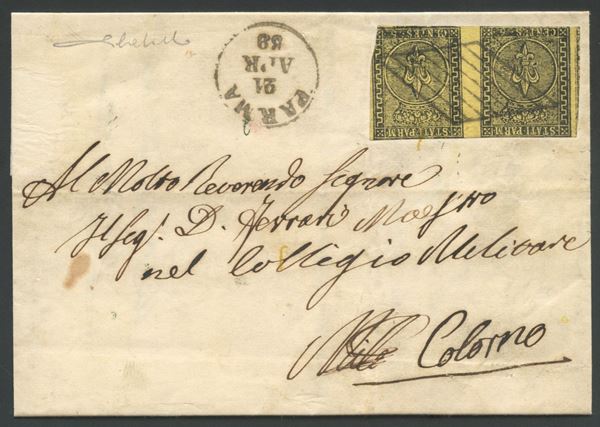 PARMA
21
APR
CENTES.
STATI PARM
CENTES.
STATI PARM
Al Molto Reverendo Signore
Il Sig. D. Ferrari Maestro
nel Collegio Militare
Colorno